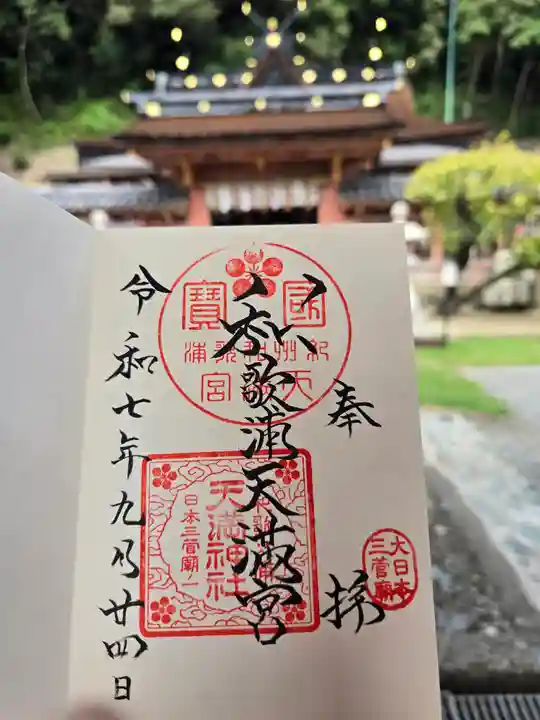 奉拝
和歌浦天満宮
令和七年九月廿四日
國寶
紀州和歌浦
天満宮
和歌浦
天満神社
日本三菅廟ノ一
大日本
三菅廟